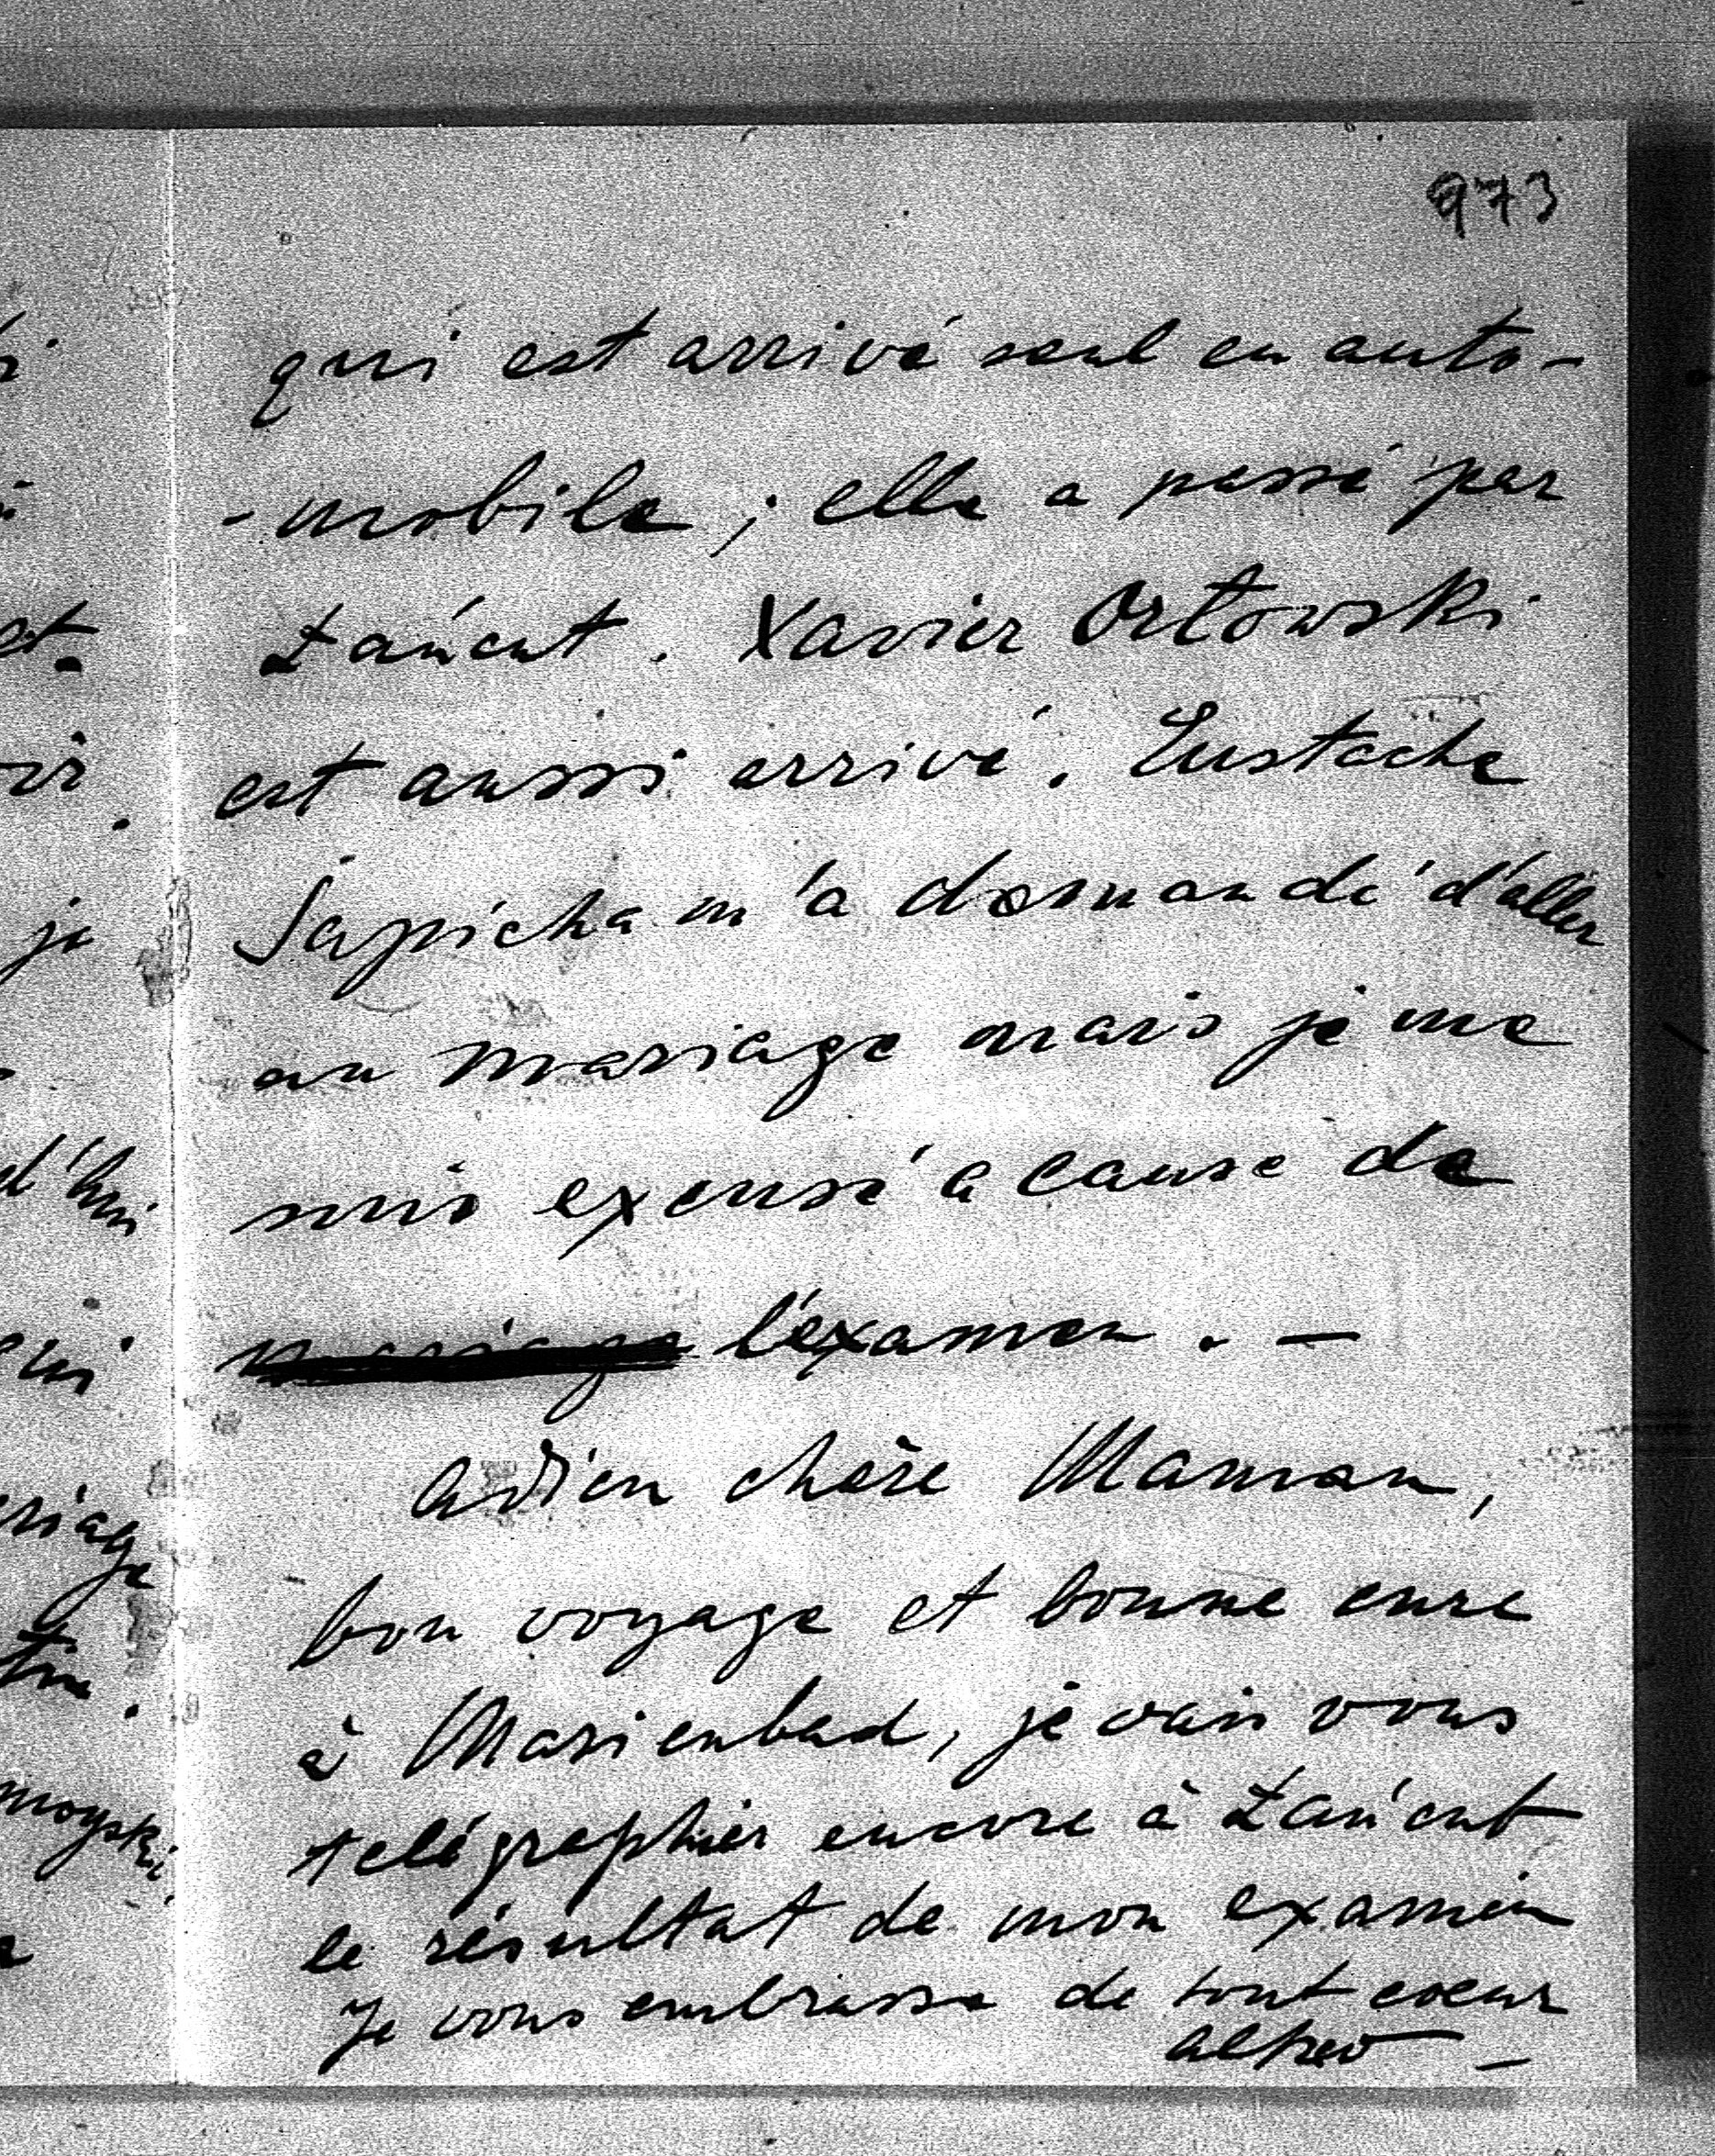 973
qui est arrivé seul en auto-
-mobile ; elle a passé par
Łańcut. Xavier Orłowski
est aussi arrivé. Eustache
Sapieha m'a demandé d'aller
au mariage mais je me
suis excusé a cause de
mariage l'éxamen. —
Adieu chère Maman,
bon voyage et bonne cure
à Marienbad, je vais vous
telégraphier encore à Łańcut
le résultat de mon examen
Je vous embrasse de tout coeur
Alfred —